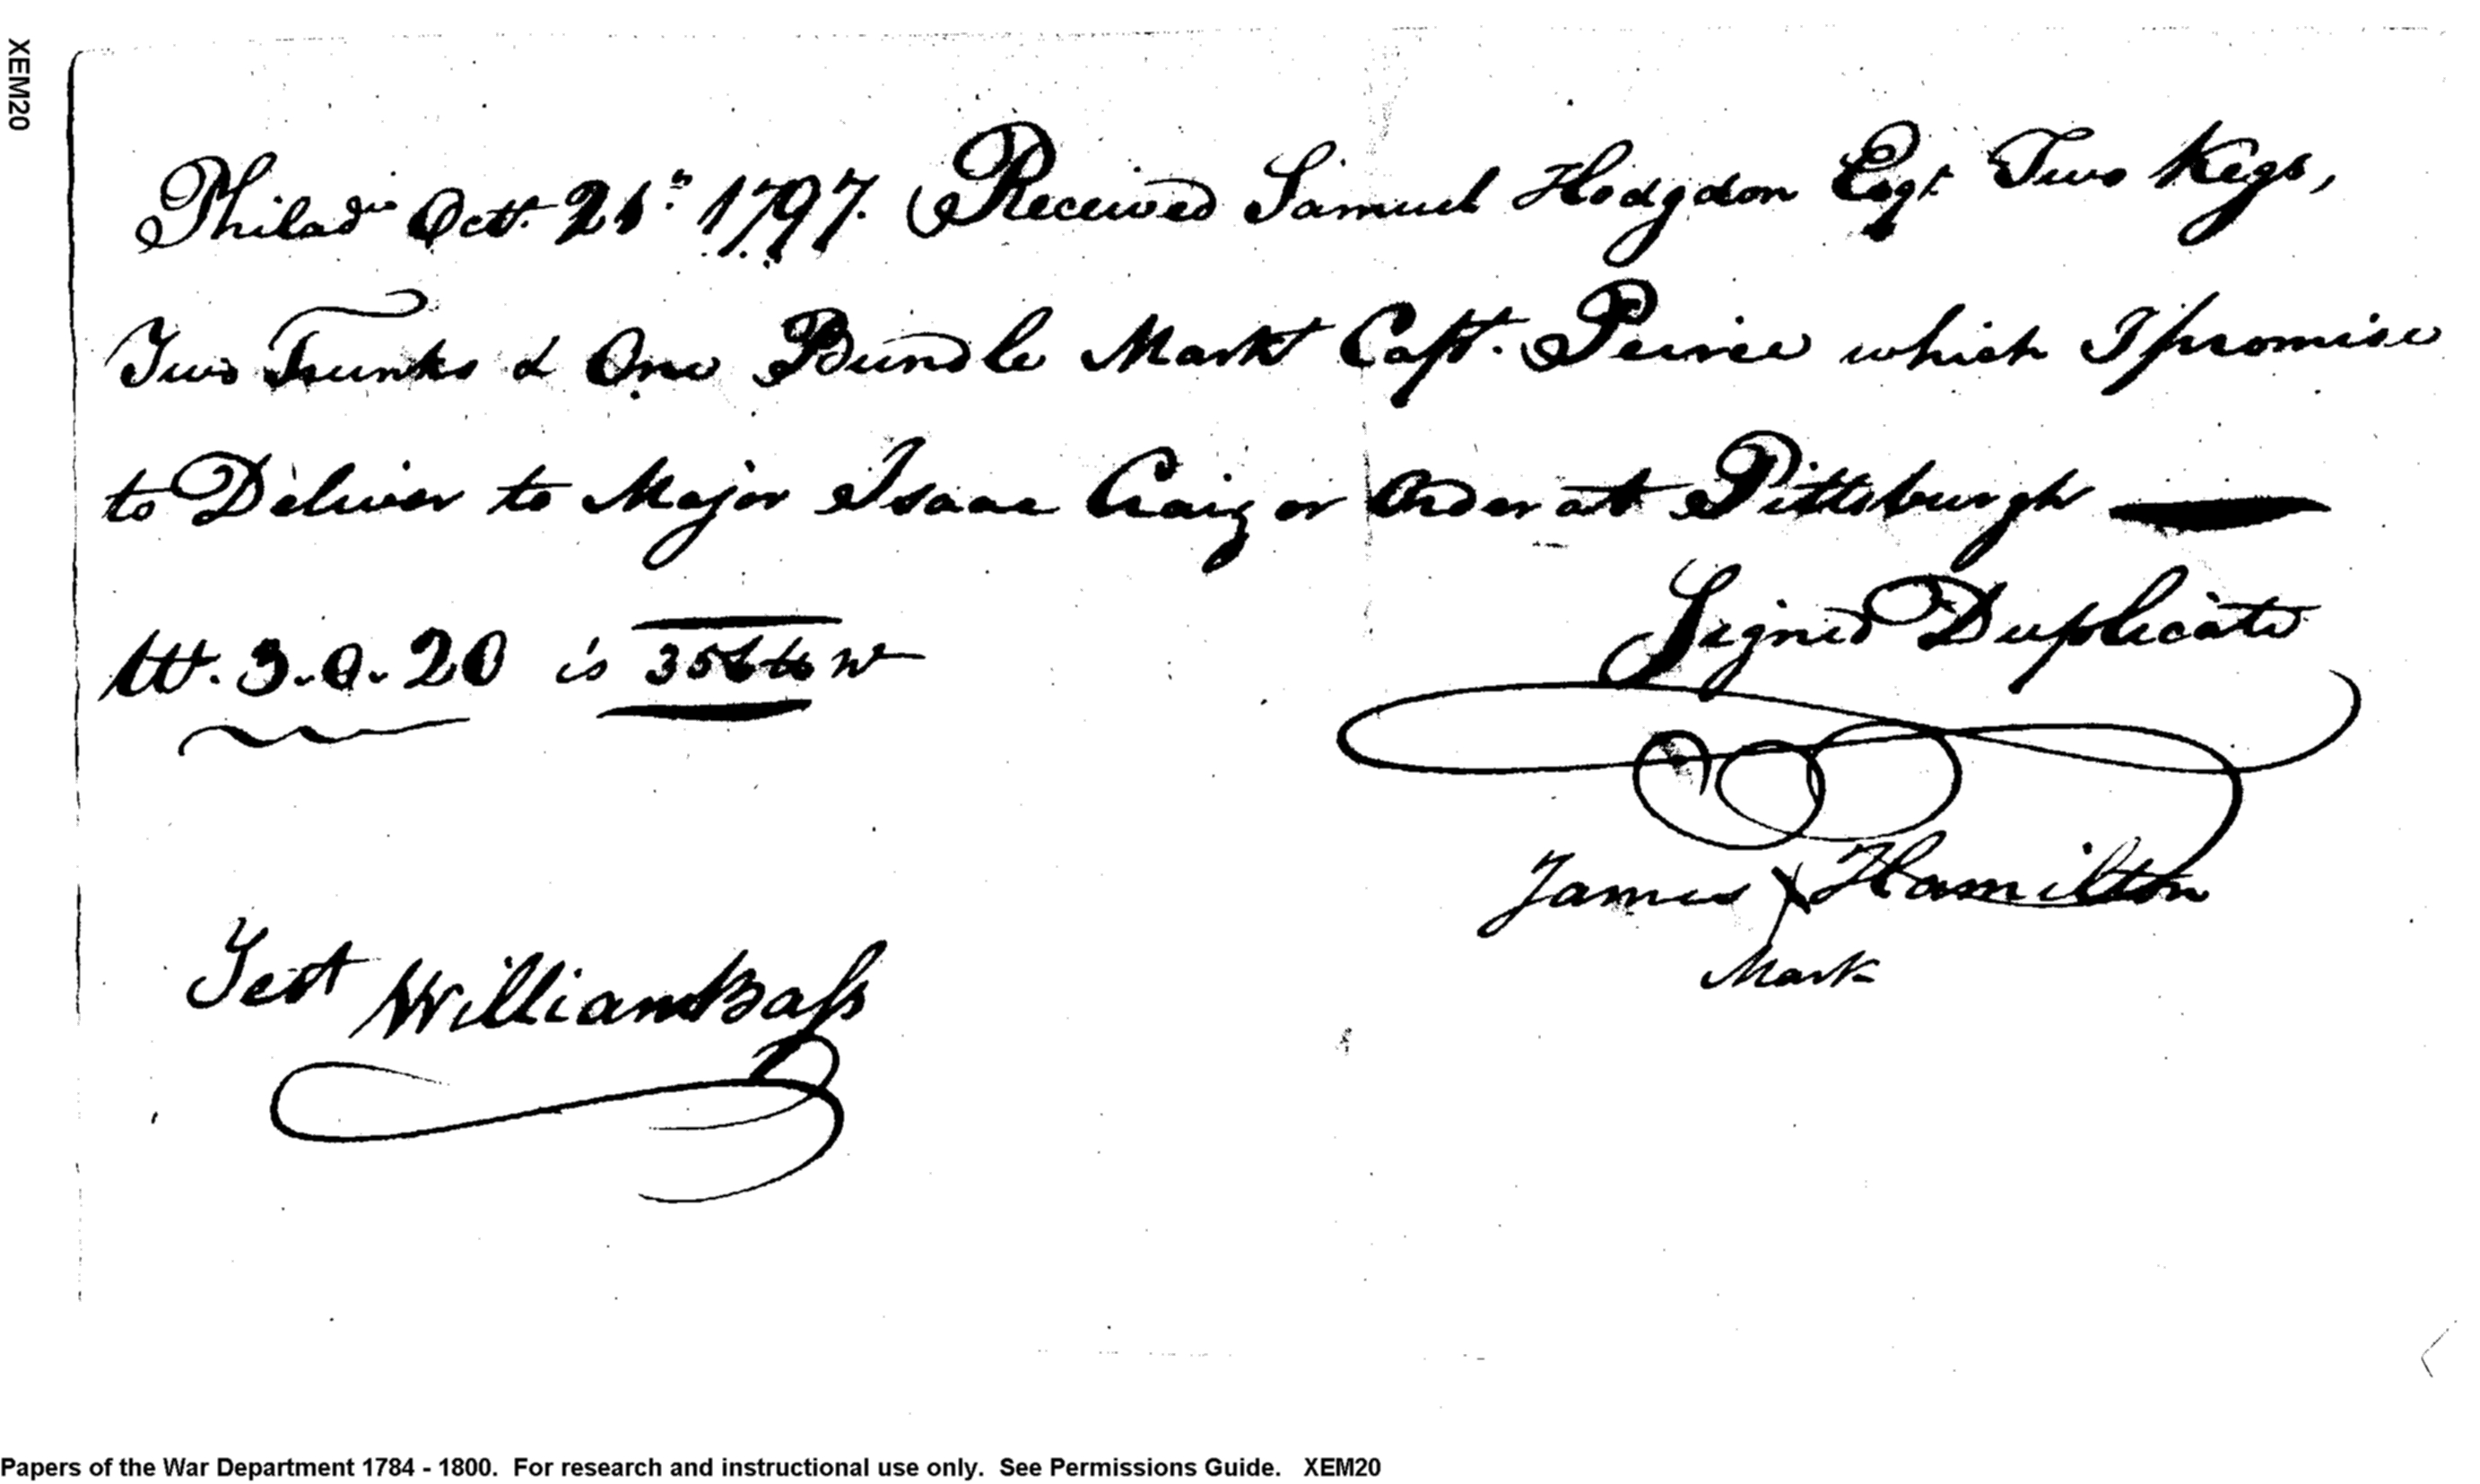 XEM20
Philada Octr. 21st 1797. Received Samuel Hodgdon Esqr Two Kegs,
Two Trunks & One Bundle Markt Capt. Peirce which I promise
to Deliver to Major Isaac Craig or Order at Pittsburgh
Wt. 3.0.20 is
Signed Duplicate
James X Hamilton
Mark
Test William Bass
Papers of the War Department 1784 - 1800. For research and instructional use only. See Permissions Guide. XEM20